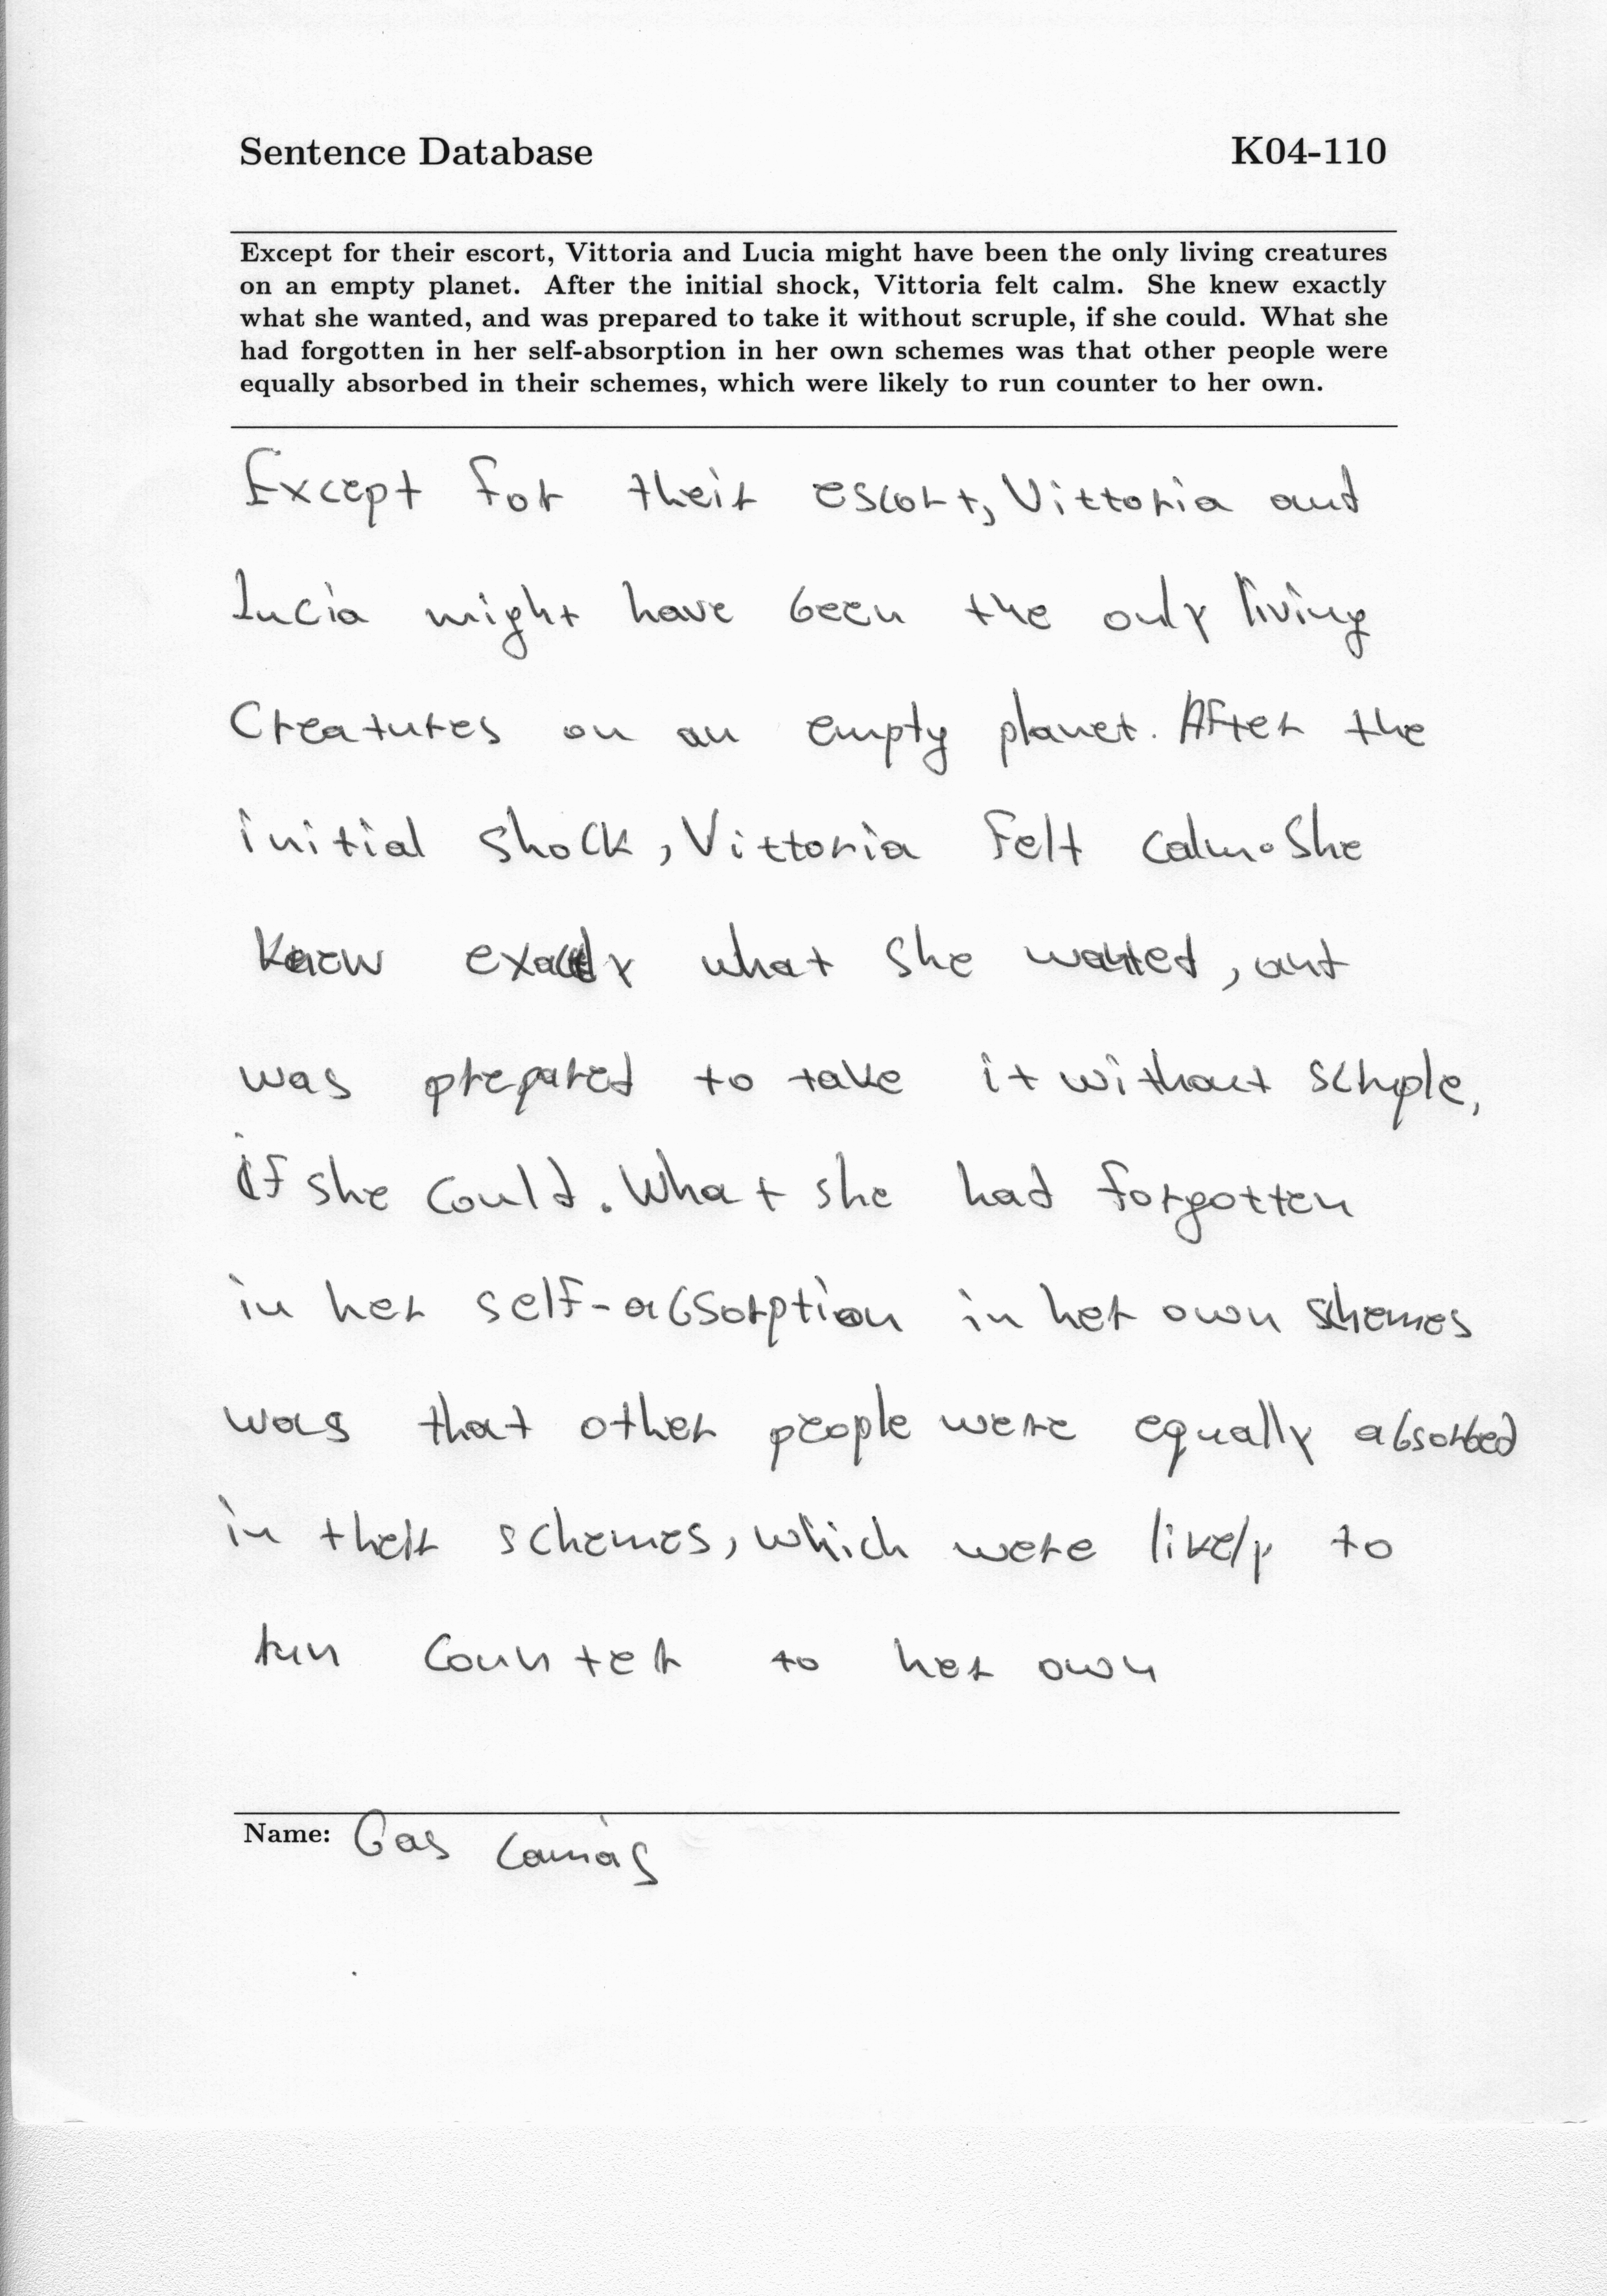 Sentence Database K04-110
Except for their escort, Vittoria and Lucia might have been the only living creatures
on an empty planet. After the initial shock, Vittoria felt calm. She knew exactly
what she wanted, and was prepared to take it without scruple, if she could. What she
had forgotten in her self-absorption in her own schemes was that other people were
equally absorbed in their schemes, which were likely to run counter to her own.
Except for their escort, Vittoria and
Lucia might have been the only living
Creatures on an empty planet. After the
initial shock, Vittoria felt calm. She
knew exactly what she wanted, and
was prepared to take it without scruple,
if she could. What she had forgotten
in her self-absorption in her own schemes
was that other people were equally absorbed
in their schemes, which were likely to
run counter to her own
Name: Gas